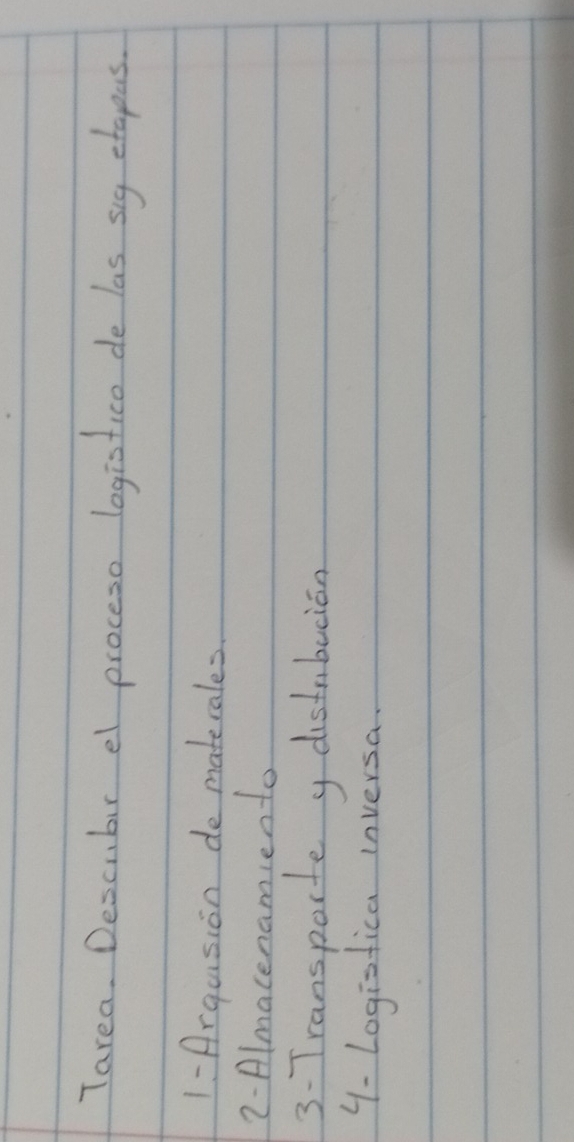 Tarea. Describir el proceso logístico de las sig etapas.
1.- Arquisión de materales.
2- Almacenamiento
3- Transporte y distribución
4- Logística inversa.